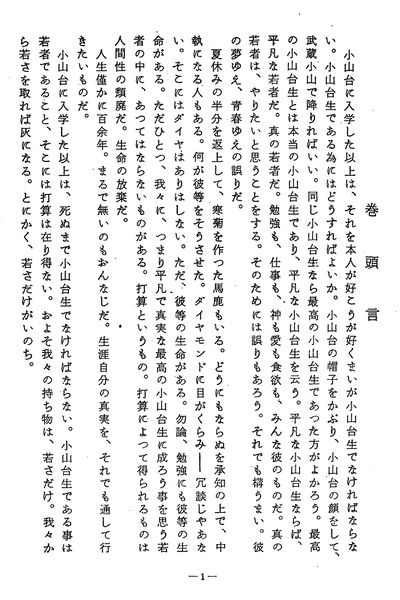 巻頭言
小山台に入学した以上は、それを本人が好こうが好くまいが小山台生でなければならな
い。小山台生である為にはどうすればよいか。小山台の帽子をかぶり、小山台の顔をして、
武蔵小山で降りればいい。同じ小山台生なら最高の小山台生であつた方がよかろう。最高
の小山台生とは本当の小山台生であり、平凡な小山台生を云う。平凡な小山台生ならば、
平凡な若者だ。真の若者だ。勉強も、仕事も、神も愛も食欲も、みんな彼のものだ。真の
若者は、やりたいと思うことをする。そのためには誤りもあろう。それでも構うまい。彼
の夢ゆえ、青春ゆえの誤りだ。
夏休みの半分を返上して、寒菊を作つた馬鹿もいる。どうにもならぬを承知の上で、中
執になる人もある。何が彼等をそうさせた。ダイヤモンドに目がくらみ――冗談じやあな
い。そこにはダイヤはありはしない。ただ、彼等の生命がある。勿論、勉強にも彼等の生
命がある。ただひとつ、我々に、つまり平凡で真実な最高の小山台生に成ろう事を思う若
者の中に、あつてはならないものがある。打算というもの。打算によつて得られるものは
人間性の頽廃だ。生命の放棄だ。
人生僅かに百余年。まるで無いのもおんなじだ。生涯自分の真実を、それでも通して行
きたいものだ。
小山台に入学した以上は、死ぬまで小山台生でなければならない。小山台生である事は
若者であること、そこには打算は在り得ない。およそ我々の持ち物は、若さだけ。我々か
ら若さを取れば灰になる。とにかく、若さだけがいのち。
―1―